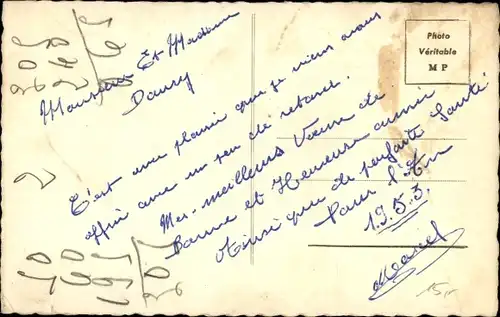 Monsieur Et Madame
Daury
C'est avec plaisir que je viens vous
offrir avec un peu de retard.
Mes meilleurs Vœux de
Bonne et Heureuse année
Ainsi que de parfaite Santé
Pour l'An
1953.
Marcel
Photo
Véritable
M P
15